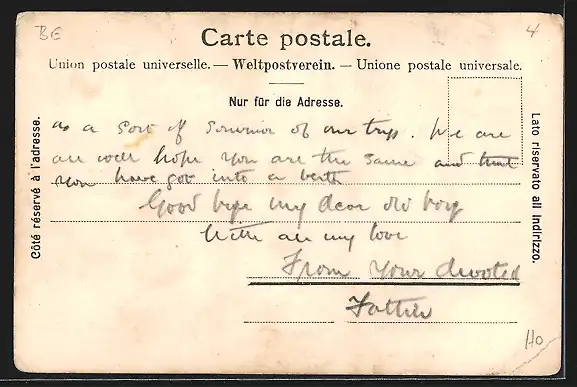 BE
4
Carte postale.
Union postale universelle. — Weltpostverein. — Unione postale universale.
Nur für die Adresse.
Côté réservé à l'adresse.
Lato riservato all indirizzo.
as a sort of souvenir of our trip. We are
all well hope you are the same and that
you have got into a berth
Good bye my dear old boy
With all my love
From your devoted
Father
Ho